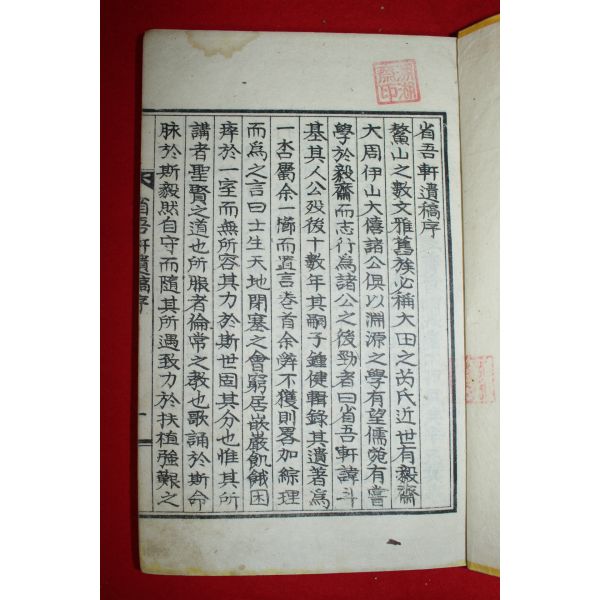 省吾軒遺稿序
鰲山之數文雅舊族必稱大田之芮氏近世有毅齋
大周伊山大僖諸公俱以淵源之學有望儒苑有嘗
學於毅齋而志行爲諸公之後勁者曰省吾軒諱斗
基其人公歿後十數年其嗣子鍾健輯錄其遺著爲
一𠳮屬余一櫛而置言卷首余辭不獲則畧加綜理
而爲之言曰士生天地閉塞之會窮居嵌巖飢餓困
瘁於一室而無所容其力於斯世固其分也惟其所
講者聖賢之道也所服者倫常之教也歌誦於斯命
脉於斯毅然自守而隨其所遇致力於扶植強艱之
省吾軒遺稿序
一